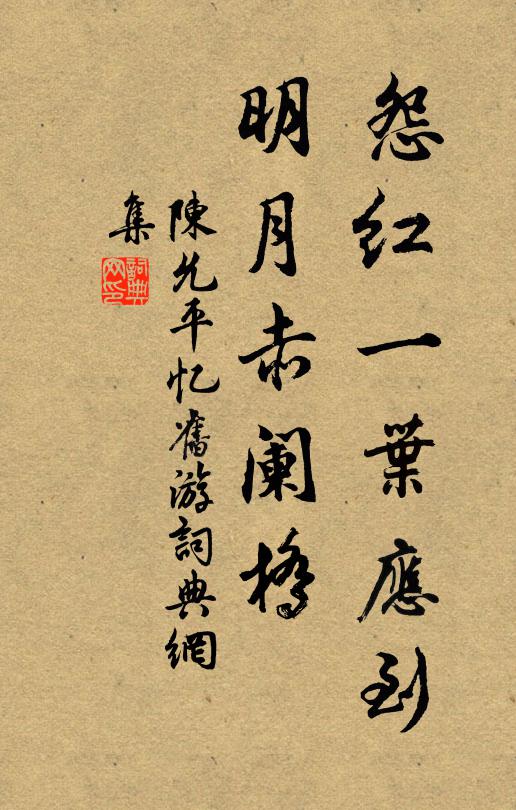 怨红一葉應到
明月赤阑橋
陳允平忆舊游詞典網
集
詞典網印